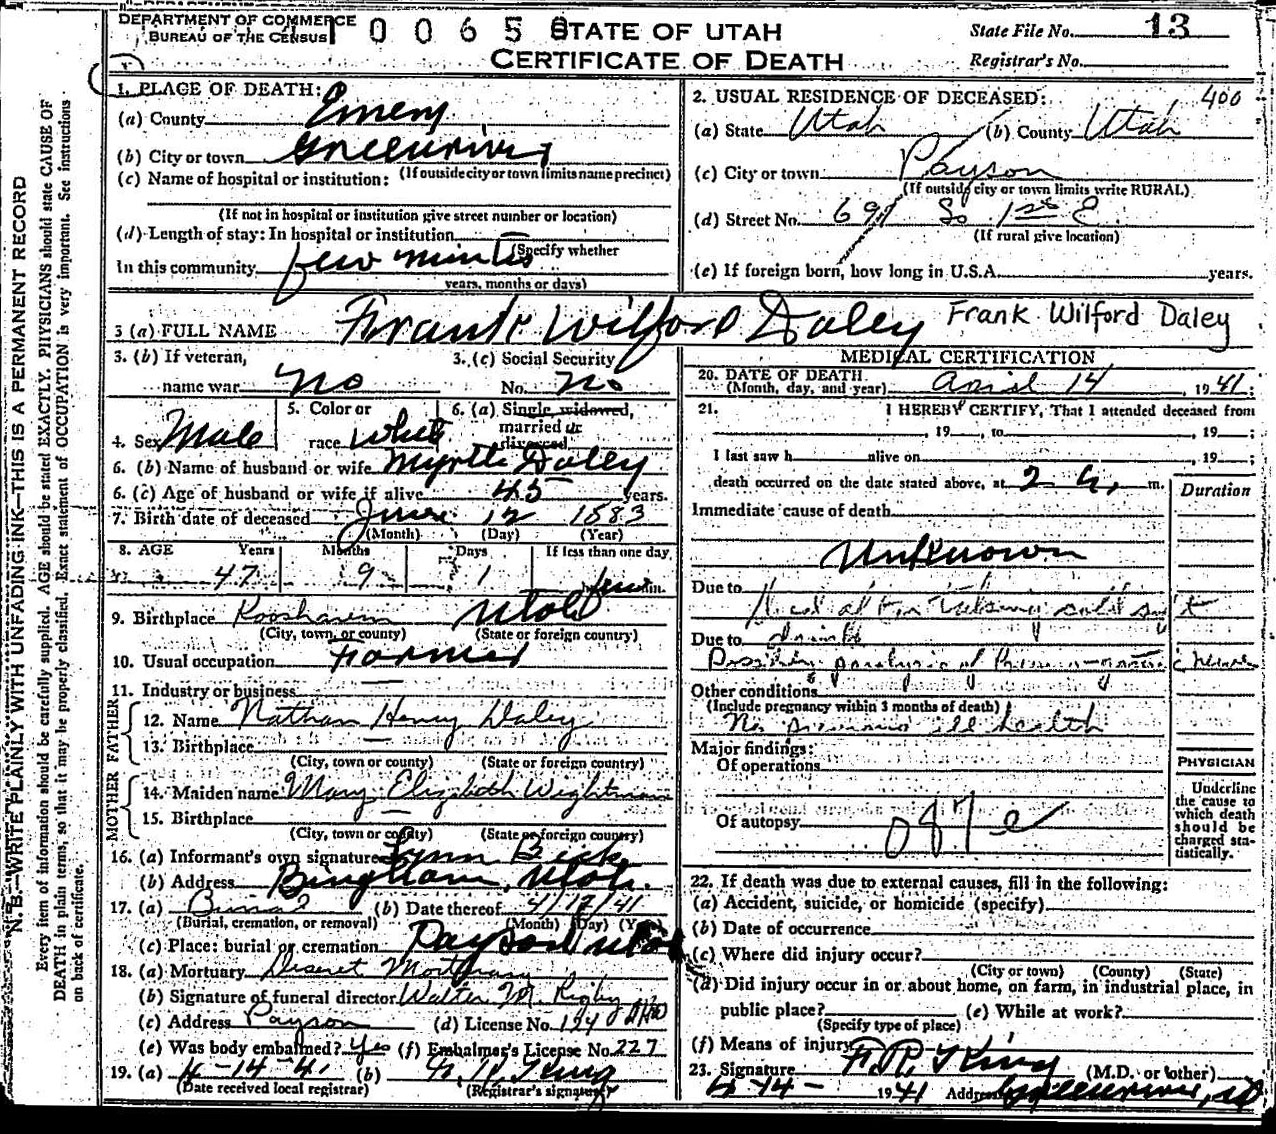 DEPARTMENT OF COMMERCE
BUREAU OF THE CENSUS
0 0 6 5
STATE OF UTAH
CERTIFICATE OF DEATH
State File No. 13
Registrar's No.
1. PLACE OF DEATH:
(a) County Emery
(b) City or town Greenriver
(If outside city or town limits name precinct)
(c) Name of hospital or institution:
(If not in hospital or institution give street number or location)
(d) Length of stay: In hospital or institution
(Specify whether
In this community few minutes
years, months or days)
2. USUAL RESIDENCE OF DECEASED: 400
(a) State Utah (b) County Utah
(c) City or town Payson
(If outside city or town limits write RURAL)
(d) Street No. 691 So 1st E
(If rural give location)
(e) If foreign born, how long in U.S.A. years.
3 (a) FULL NAME Frank Wilford Daley Frank Wilford Daley
3. (b) If veteran,
name war No
3. (c) Social Security
No. No
4. Sex Male
5. Color or
race White
6. (a) Single, widowed,
married or
divorced
6. (b) Name of husband or wife Myrtle Daley
6. (c) Age of husband or wife if alive 45 years.
7. Birth date of deceased June 12 1883
(Month) (Day) (Year)
8. AGE Years Months Days If less than one day
47 9 1 min.
9. Birthplace Koosharem Utah
(City, town, or county) (State or foreign country)
10. Usual occupation Farmer
11. Industry or business
FATHER
12. Name Nathan Henry Daley
13. Birthplace
(City, town or county) (State or foreign country)
MOTHER
14. Maiden name Mary Elizabeth Wightman
15. Birthplace
(City, town or county) (State or foreign country)
16. (a) Informant's own signature Lynn
(b) Address Bingham, Utah.
17. (a) Burial (b) Date thereof 4/17/41
(Burial, cremation, or removal) (Month) (Day) (Year)
(c) Place: burial or cremation Payson Utah
18. (a) Mortuary Deseret Mortuary
(b) Signature of funeral director Walter M. Rigby
(c) Address Payson (d) License No. 194
(e) Was body embalmed? Yes (f) Embalmer's License No. 227
19. (a) 4-14-41 (b) King
(Date received local registrar) (Registrar's signature)
MEDICAL CERTIFICATION
20. DATE OF DEATH
(Month, day, and year) April 14, 1941;
21. I HEREBY CERTIFY, That I attended deceased from
, 19 , to , 19 ;
I last saw h alive on , 19 ;
death occurred on the date stated above, at 2 m.
Duration
Immediate cause of death
Unknown
Due to Died after taking cold
Due to drink
Possibly paralysis of Pneumo-gastric Nerve
Other conditions
(Include pregnancy within 3 months of death)
No previous ill health
Major findings:
Of operations
PHYSICIAN
Underline
the cause to
which death
should be
charged sta-
tistically.
Of autopsy
22. If death was due to external causes, fill in the following:
(a) Accident, suicide, or homicide (specify)
(b) Date of occurrence
(c) Where did injury occur?
(City or town) (County) (State)
(d) Did injury occur in or about home, on farm, in industrial place, in
public place? (e) While at work?
(Specify type of place)
(f) Means of injury
23. Signature King (M.D. or other)
4-14- 1941 Address Greenriver, Ut
N. B.—WRITE PLAINLY WITH UNFADING INK—THIS IS A PERMANENT RECORD
Every item of information should be carefully supplied. AGE should be stated EXACTLY. PHYSICIANS should state CAUSE OF
DEATH in plain terms, so that it may be properly classified. Exact statement of OCCUPATION is very important. See instructions
on back of certificate.